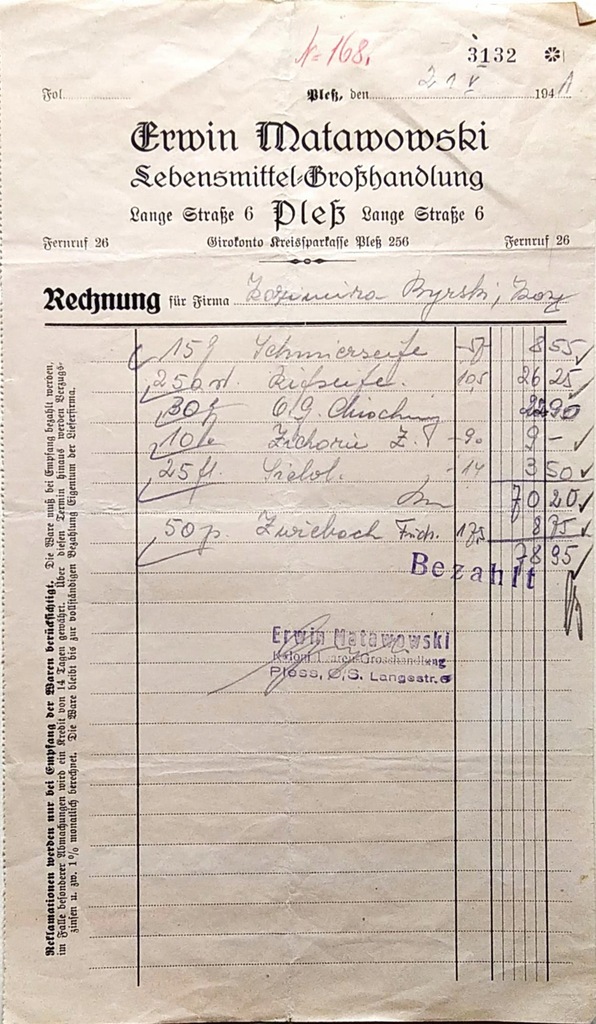 N= 168.
3132
Fol.
Pleß, den 21 V 1941
Erwin Matawowski
Lebensmittel-Großhandlung
Lange Straße 6 Pleß Lange Straße 6
Fernruf 26 Girokonto Kreissparkasse Pleß 256 Fernruf 26
Rechnung für Firma Byrski,
15 Schmierseife -57 8 55
250 Rifseife. 105 26 25
30 90
10 Zichorie Z. -90 9 -
25 fl. Sidol. -14 3 50
70 20
50 p. Zwieback 175 8 75
78 95
Bezahlt
Erwin Matawowski
Pless, O/S. Langestr. 6
Reklamationen werden nur bei Empfang der Waren berücksichtigt. Die Ware muß bei Empfang bezahlt werden,
im Falle besonderer Abmachungen wird ein Kredit von 14 Tagen gewährt. Über diesen Termin hinaus werden Verzugs-
zinsen u. zw. 1% monatlich berechnet. Die Ware bleibt bis zur vollständigen Bezahlung Eigentum der Lieferfirma.